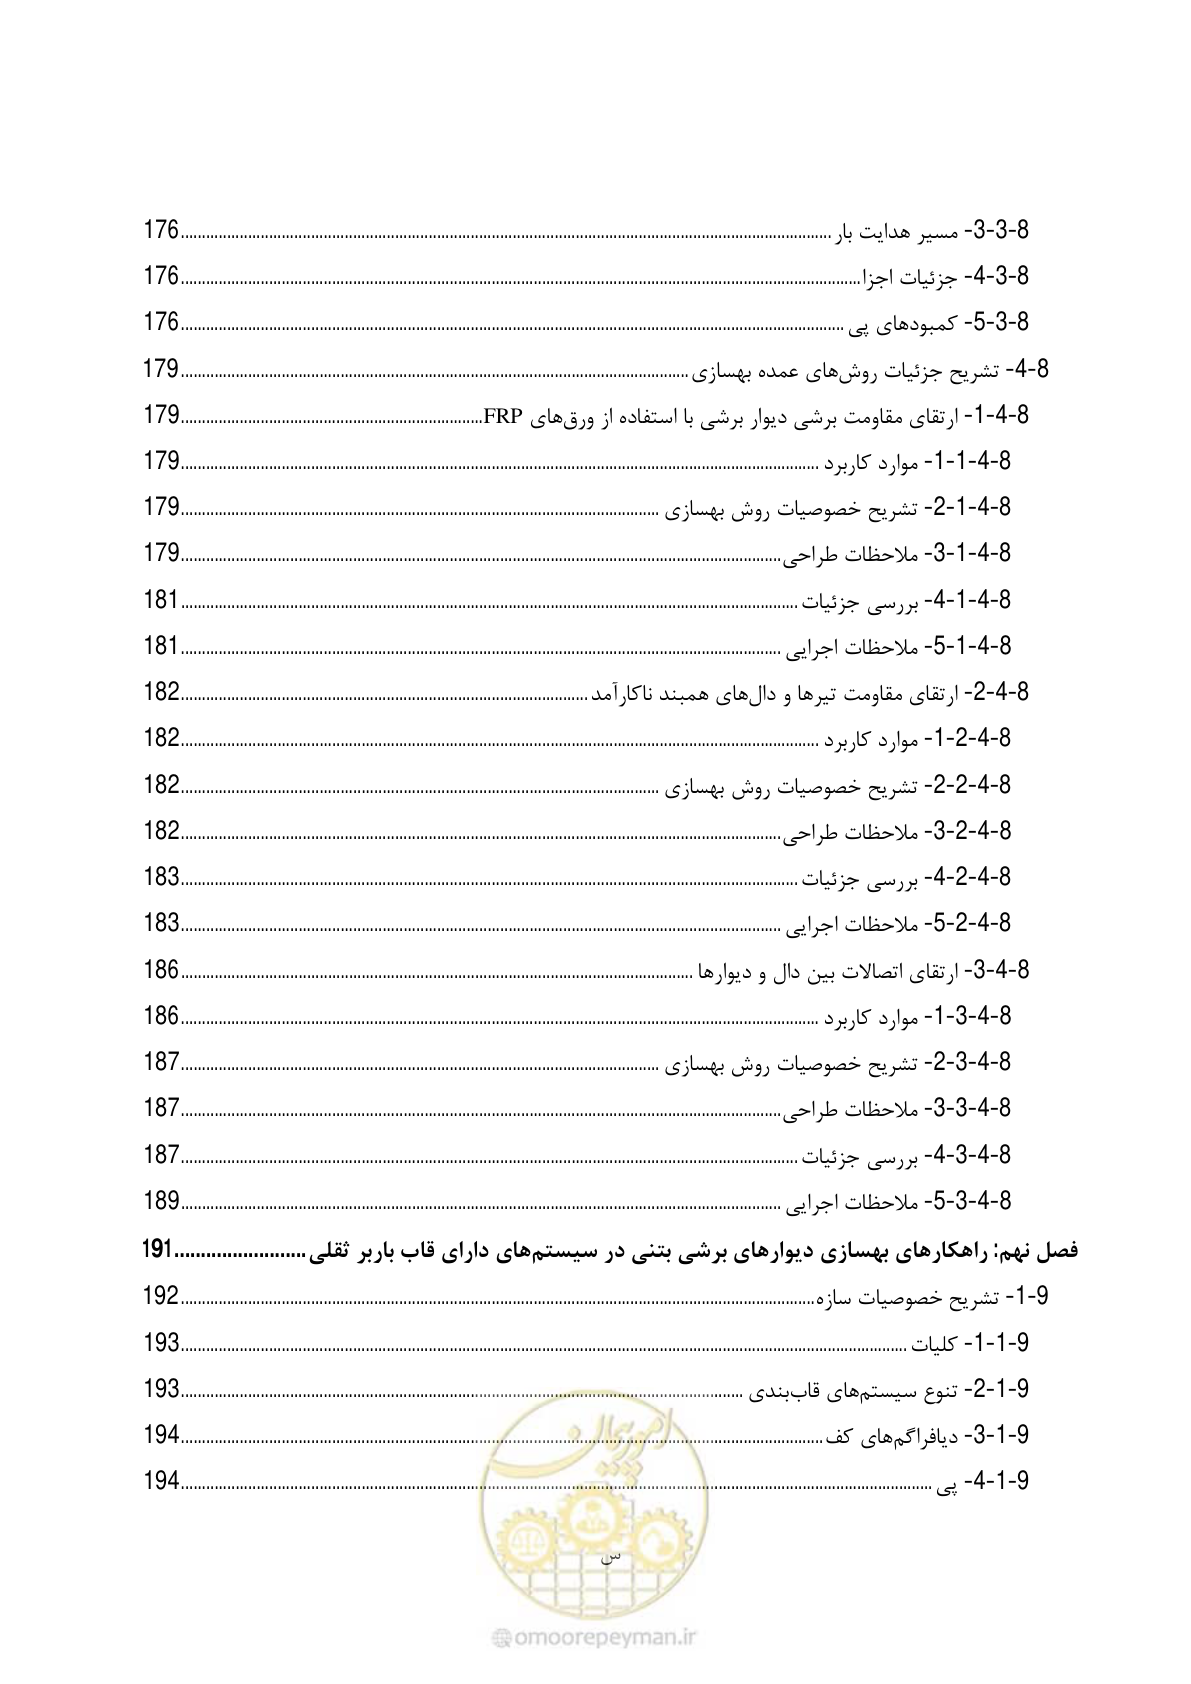 8-3-3- مسیر هدایت بار ........ 176
8-3-4- جزئیات اجزا ........ 176
8-3-5- کمبودهای پی ........ 176
8-4- تشریح جزئیات روش‌های عمده بهسازی ........ 179
8-4-1- ارتقای مقاومت برشی دیوار برشی با استفاده از ورق‌های FRP ........ 179
8-4-1-1- موارد کاربرد ........ 179
8-4-1-2- تشریح خصوصیات روش بهسازی ........ 179
8-4-1-3- ملاحظات طراحی ........ 179
8-4-1-4- بررسی جزئیات ........ 181
8-4-1-5- ملاحظات اجرایی ........ 181
8-4-2- ارتقای مقاومت تیرها و دال‌های همبند ناکارآمد ........ 182
8-4-2-1- موارد کاربرد ........ 182
8-4-2-2- تشریح خصوصیات روش بهسازی ........ 182
8-4-2-3- ملاحظات طراحی ........ 182
8-4-2-4- بررسی جزئیات ........ 183
8-4-2-5- ملاحظات اجرایی ........ 183
8-4-3- ارتقای اتصالات بین دال و دیوارها ........ 186
8-4-3-1- موارد کاربرد ........ 186
8-4-3-2- تشریح خصوصیات روش بهسازی ........ 187
8-4-3-3- ملاحظات طراحی ........ 187
8-4-3-4- بررسی جزئیات ........ 187
8-4-3-5- ملاحظات اجرایی ........ 189
فصل نهم: راهکارهای بهسازی دیوارهای برشی بتنی در سیستم‌های دارای قاب باربر ثقلی ........ 191
9-1- تشریح خصوصیات سازه ........ 192
9-1-1- کلیات ........ 193
9-1-2- تنوع سیستم‌های قاب‌بندی ........ 193
9-1-3- دیافراگم‌های کف ........ 194
9-1-4- پی ........ 194
امور پیمان
س
omoorepeyman.ir